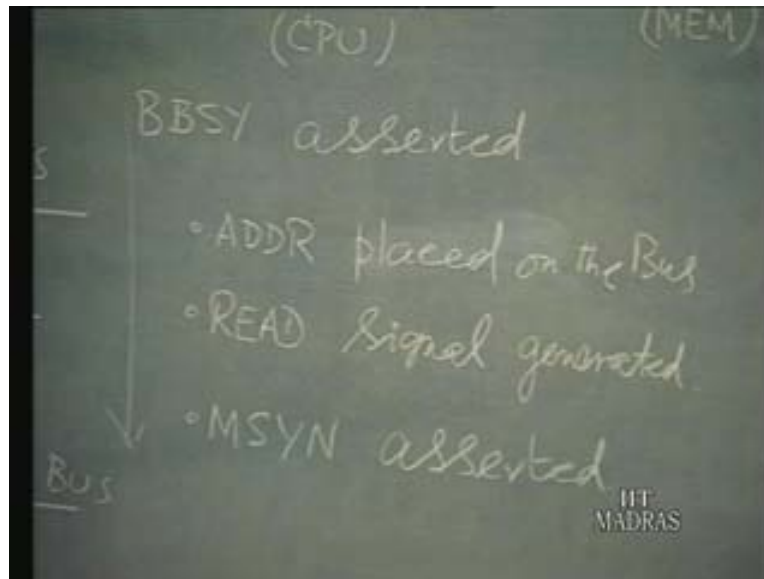 (CPU) (MEM)
BBSY asserted
S
• ADDR placed on the Bus
• READ signal generated.
• MSYN asserted
BUS
IIT
MADRAS